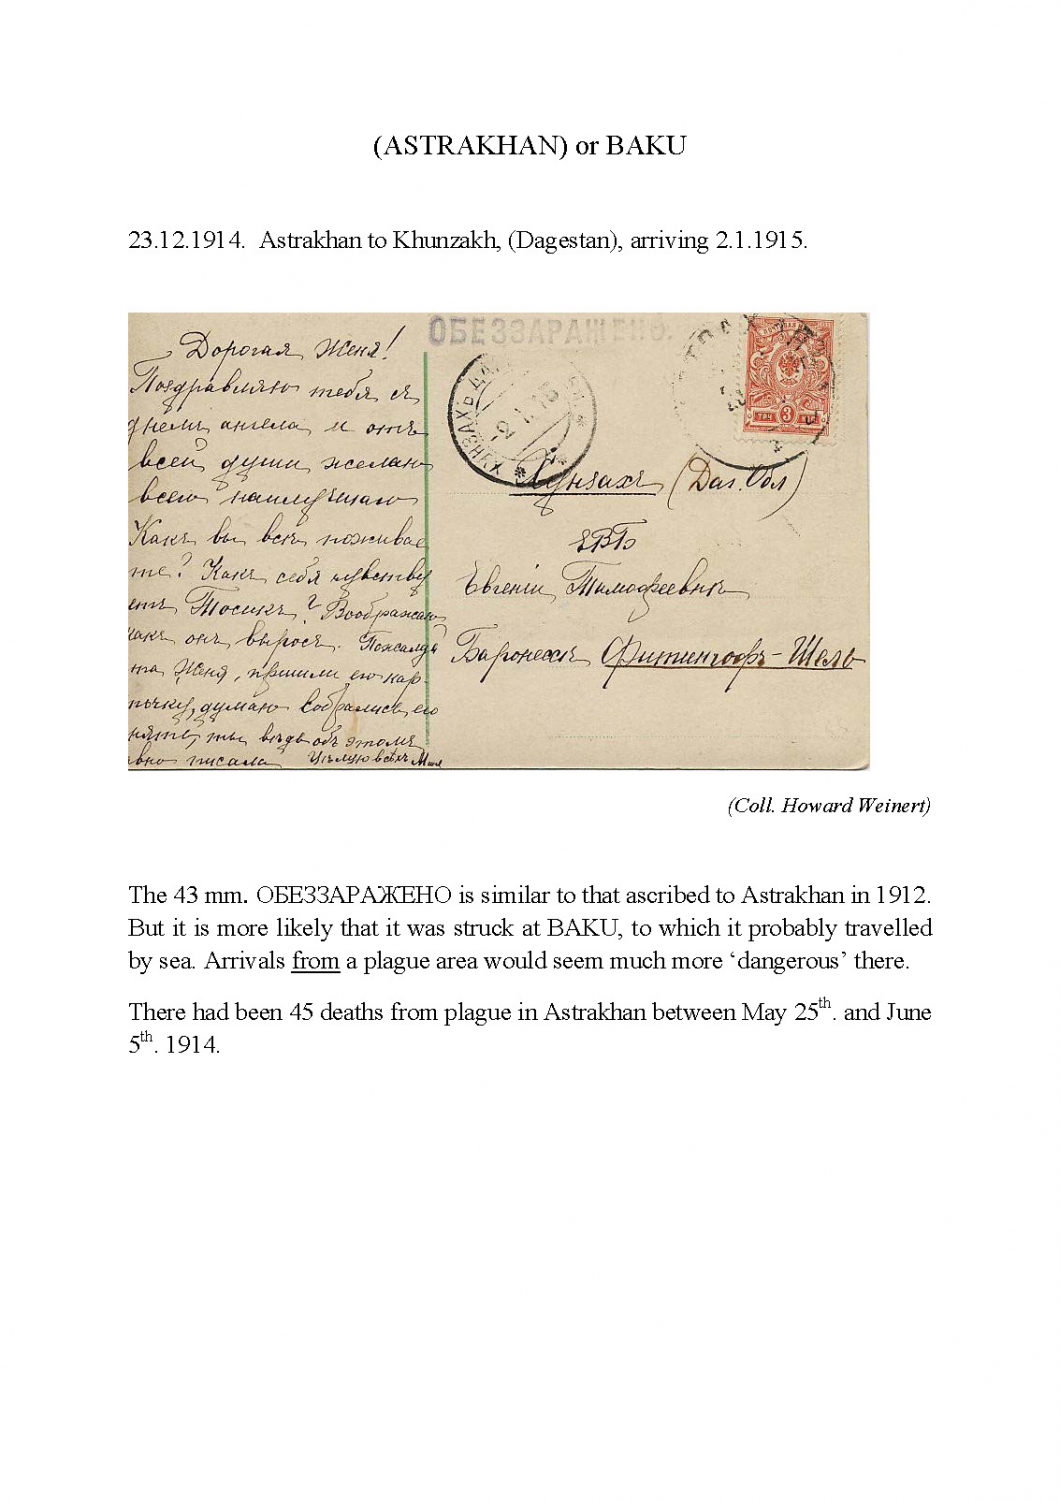 (ASTRAKHAN) or BAKU
23.12.1914. Astrakhan to Khunzakh, (Dagestan), arriving 2.1.1915.
ОБЕЗЗАРАЖЕНО.
Дорогая Женя!
Поздравляю тебя съ
днемъ ангела и отъ
всей души желаю
всего наилучшаго
Какъ вы всѣ поживае
те? Какъ себя чувству
етъ Тосикъ? Воображаю
какъ онъ выросъ. Пожалуй
ста Женя, пришли его кар-
точку, думаю собрались его
снять, ты вѣдь объ этомъ
давно писала Цѣлую всѣхъ
ХУНЗАХЪ ДАГ.
-2.1.15
3
Хунзахъ (Даг. Обл)
ЕВБ
Евгеніи Тимофеевнѣ
Баронессѣ Фитингофъ-Шель
(Coll. Howard Weinert)
The 43 mm. ОБЕЗЗАРАЖЕНО is similar to that ascribed to Astrakhan in 1912.
But it is more likely that it was struck at BAKU, to which it probably travelled
by sea. Arrivals from a plague area would seem much more ‘dangerous’ there.
There had been 45 deaths from plague in Astrakhan between May 25th. and June
5th. 1914.